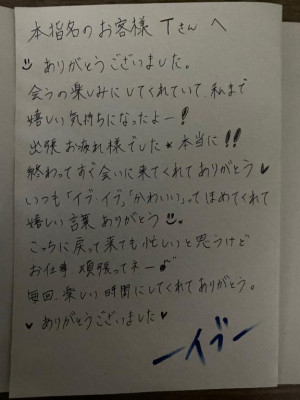 本指名のお客様 Tさん へ
ありがとうございました。
会うの楽しみにしてくれていて、私まで
嬉しい気持ちになったよー!
出張 お疲れ様でした★本当に!!
終わってすぐ会いに来てくれてありがとう♥
いつも「イブ・イブ」「かわいい」ってほめてくれて
嬉しい言葉 ありがとう
こっちに戻って来ても忙しいと思うけど
お仕事 頑張ってネー
毎回、楽しい時間にしてくれてありがとう。
♥ ありがとうございました♥
ーイブー